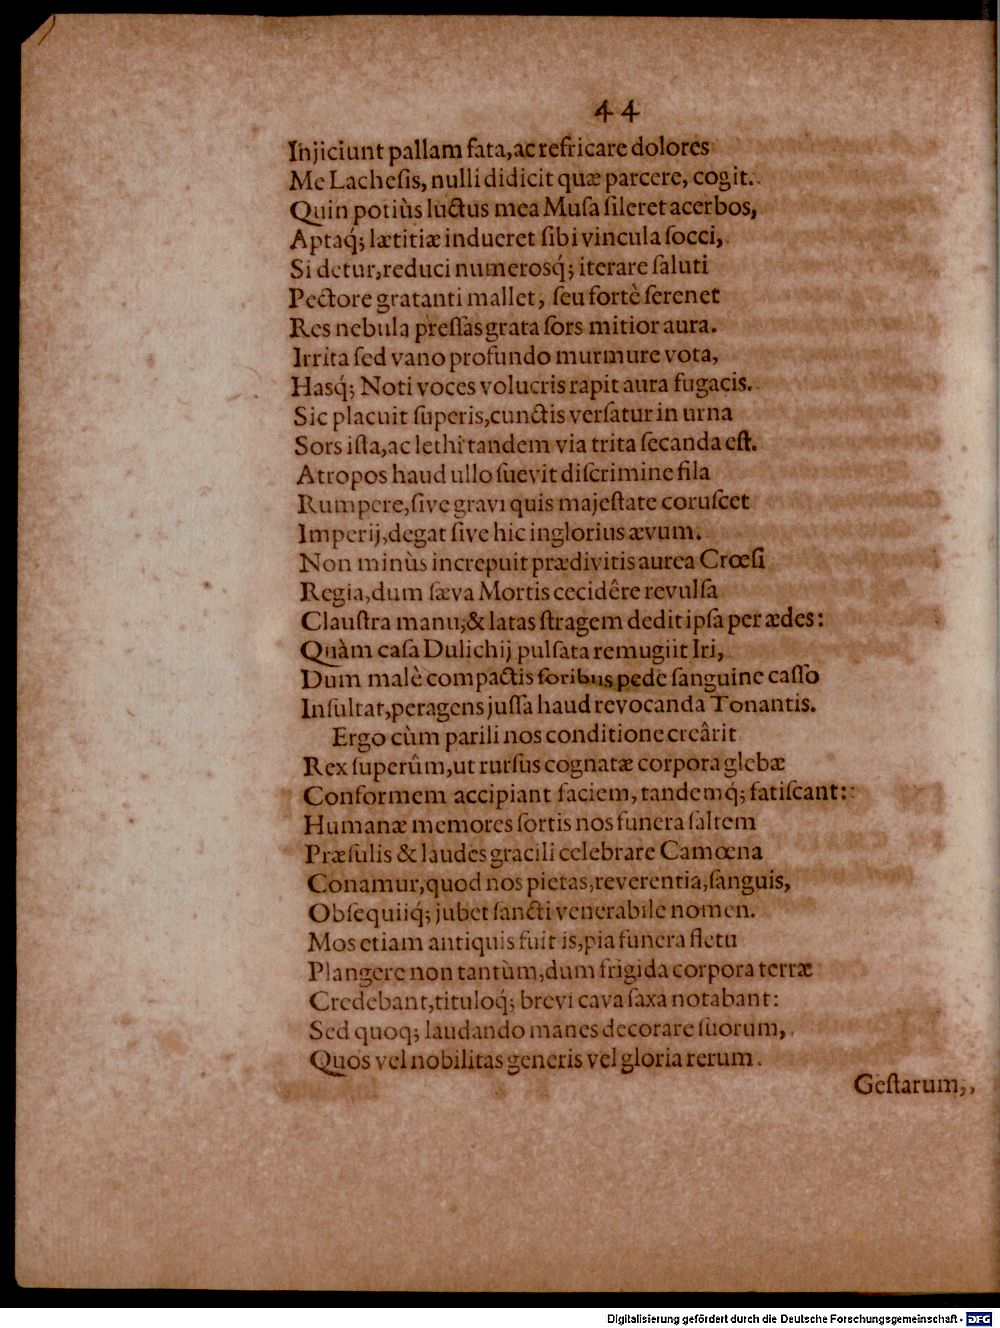 44
Injiciunt pallam fata, ac refricare dolores
Me Lacheſis, nulli didicit quæ parcere, cogit.
Quin potiùs luctus mea Muſa ſileret acerbos,
Aptaq́; lætitiæ indueret ſibi vincula ſocci,
Si detur, reduci numerosq́; iterare ſaluti
Pectore gratanti mallet, ſeu fortè ſerenet
Res nebula preſſas grata ſors mitior aura.
Irrita ſed vano profundo murmure vota,
Hasq́; Noti voces volucris rapit aura fugacis.
Sic placuit ſuperis, cunctis verſatur in urna
Sors iſta, ac lethi tandem via trita ſecanda eſt.
Atropos haud ullo ſuevit diſcrimine fila
Rumpere, ſive gravi quis majeſtate coruſcet
Imperij, degat ſive hic inglorius ævum.
Non minùs increpuit prædivitis aurea Crœſi
Regia, dum ſæva Mortis cecidêre revulſa
Clauſtra manu; & latas ſtragem dedit ipſa per ædes:
Quàm caſa Dulichij pulſata remugiit Iri,
Dum malè compactis foribus pede ſanguine caſſo
Inſultat, peragens juſſa haud revocanda Tonantis.
Ergo cùm parili nos conditione creârit
Rex ſuperûm, ut rurſus cognatæ corpora glebæ
Conformem accipiant faciem, tandemq́; fatiſcant:
Humanæ memores ſortis nos funera ſaltem
Præſulis & laudes gracili celebrare Camœna
Conamur, quod nos pietas, reverentia, ſanguis,
Obſequiiq́; jubet ſancti venerabile nomen.
Mos etiam antiquis fuit is, pia funera fletu
Plangere non tantùm, dum frigida corpora terræ
Credebant, tituloq́; brevi cava ſaxa notabant:
Sed quoq; laudando manes decorare ſuorum,
Quos vel nobilitas generis vel gloria rerum.
Geſtarum,
Digitalisierung gefördert durch die Deutsche Forschungsgemeinschaft - DFG